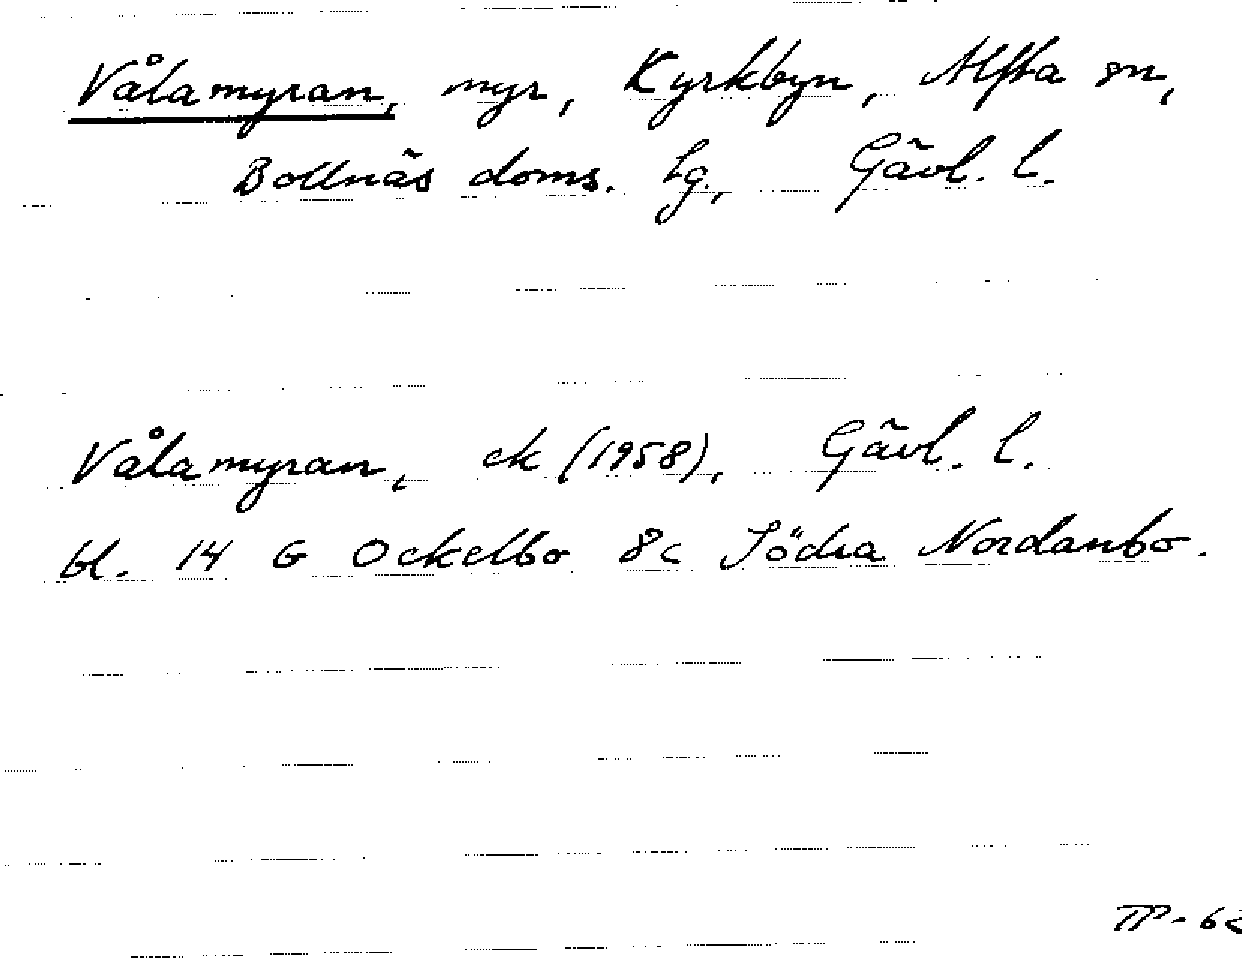 Vålamyran, myr, Kyrkbyn, Alfta sn,
Bollnäs doms. lg., Gävl. l.
Vålamyran, ek (1958), Gävl. l.
bl. 14 G Ockelbo 8c Södra Nordanbo.